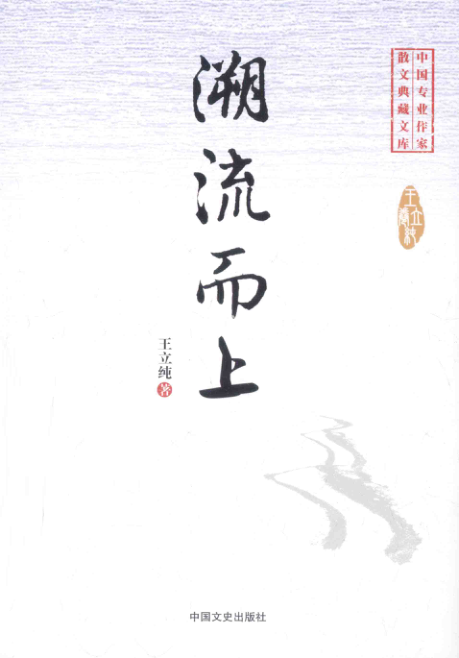 中国专业作家
散文典藏文库
溯流而上
王立纯
著
中国文史出版社